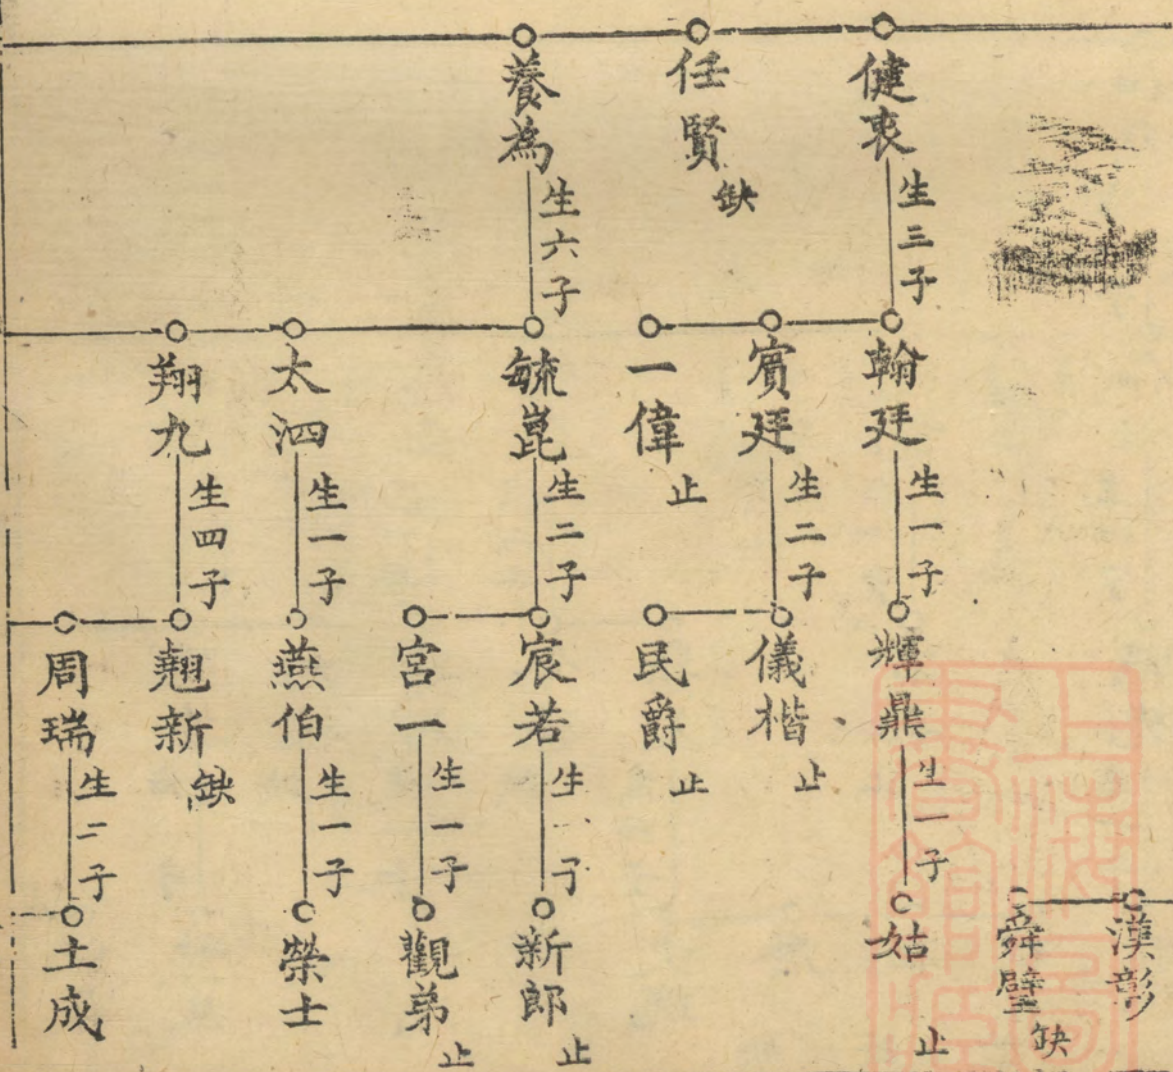 健衷
生三子
任賢
缺
養為
生六子
翰廷
生一子
賓廷
生二子
一偉
止
毓崑
生二子
太泗
生一子
翔九
生四子
輝鼎
生一子
儀楷
止
民爵
止
宸若
生一子
宮一
生一子
燕伯
生一子
翹新
缺
周瑞
生二子
漢彰
舜璧
缺
姑
止
新郎
止
觀弟
止
榮士
土成
上海圖書館藏